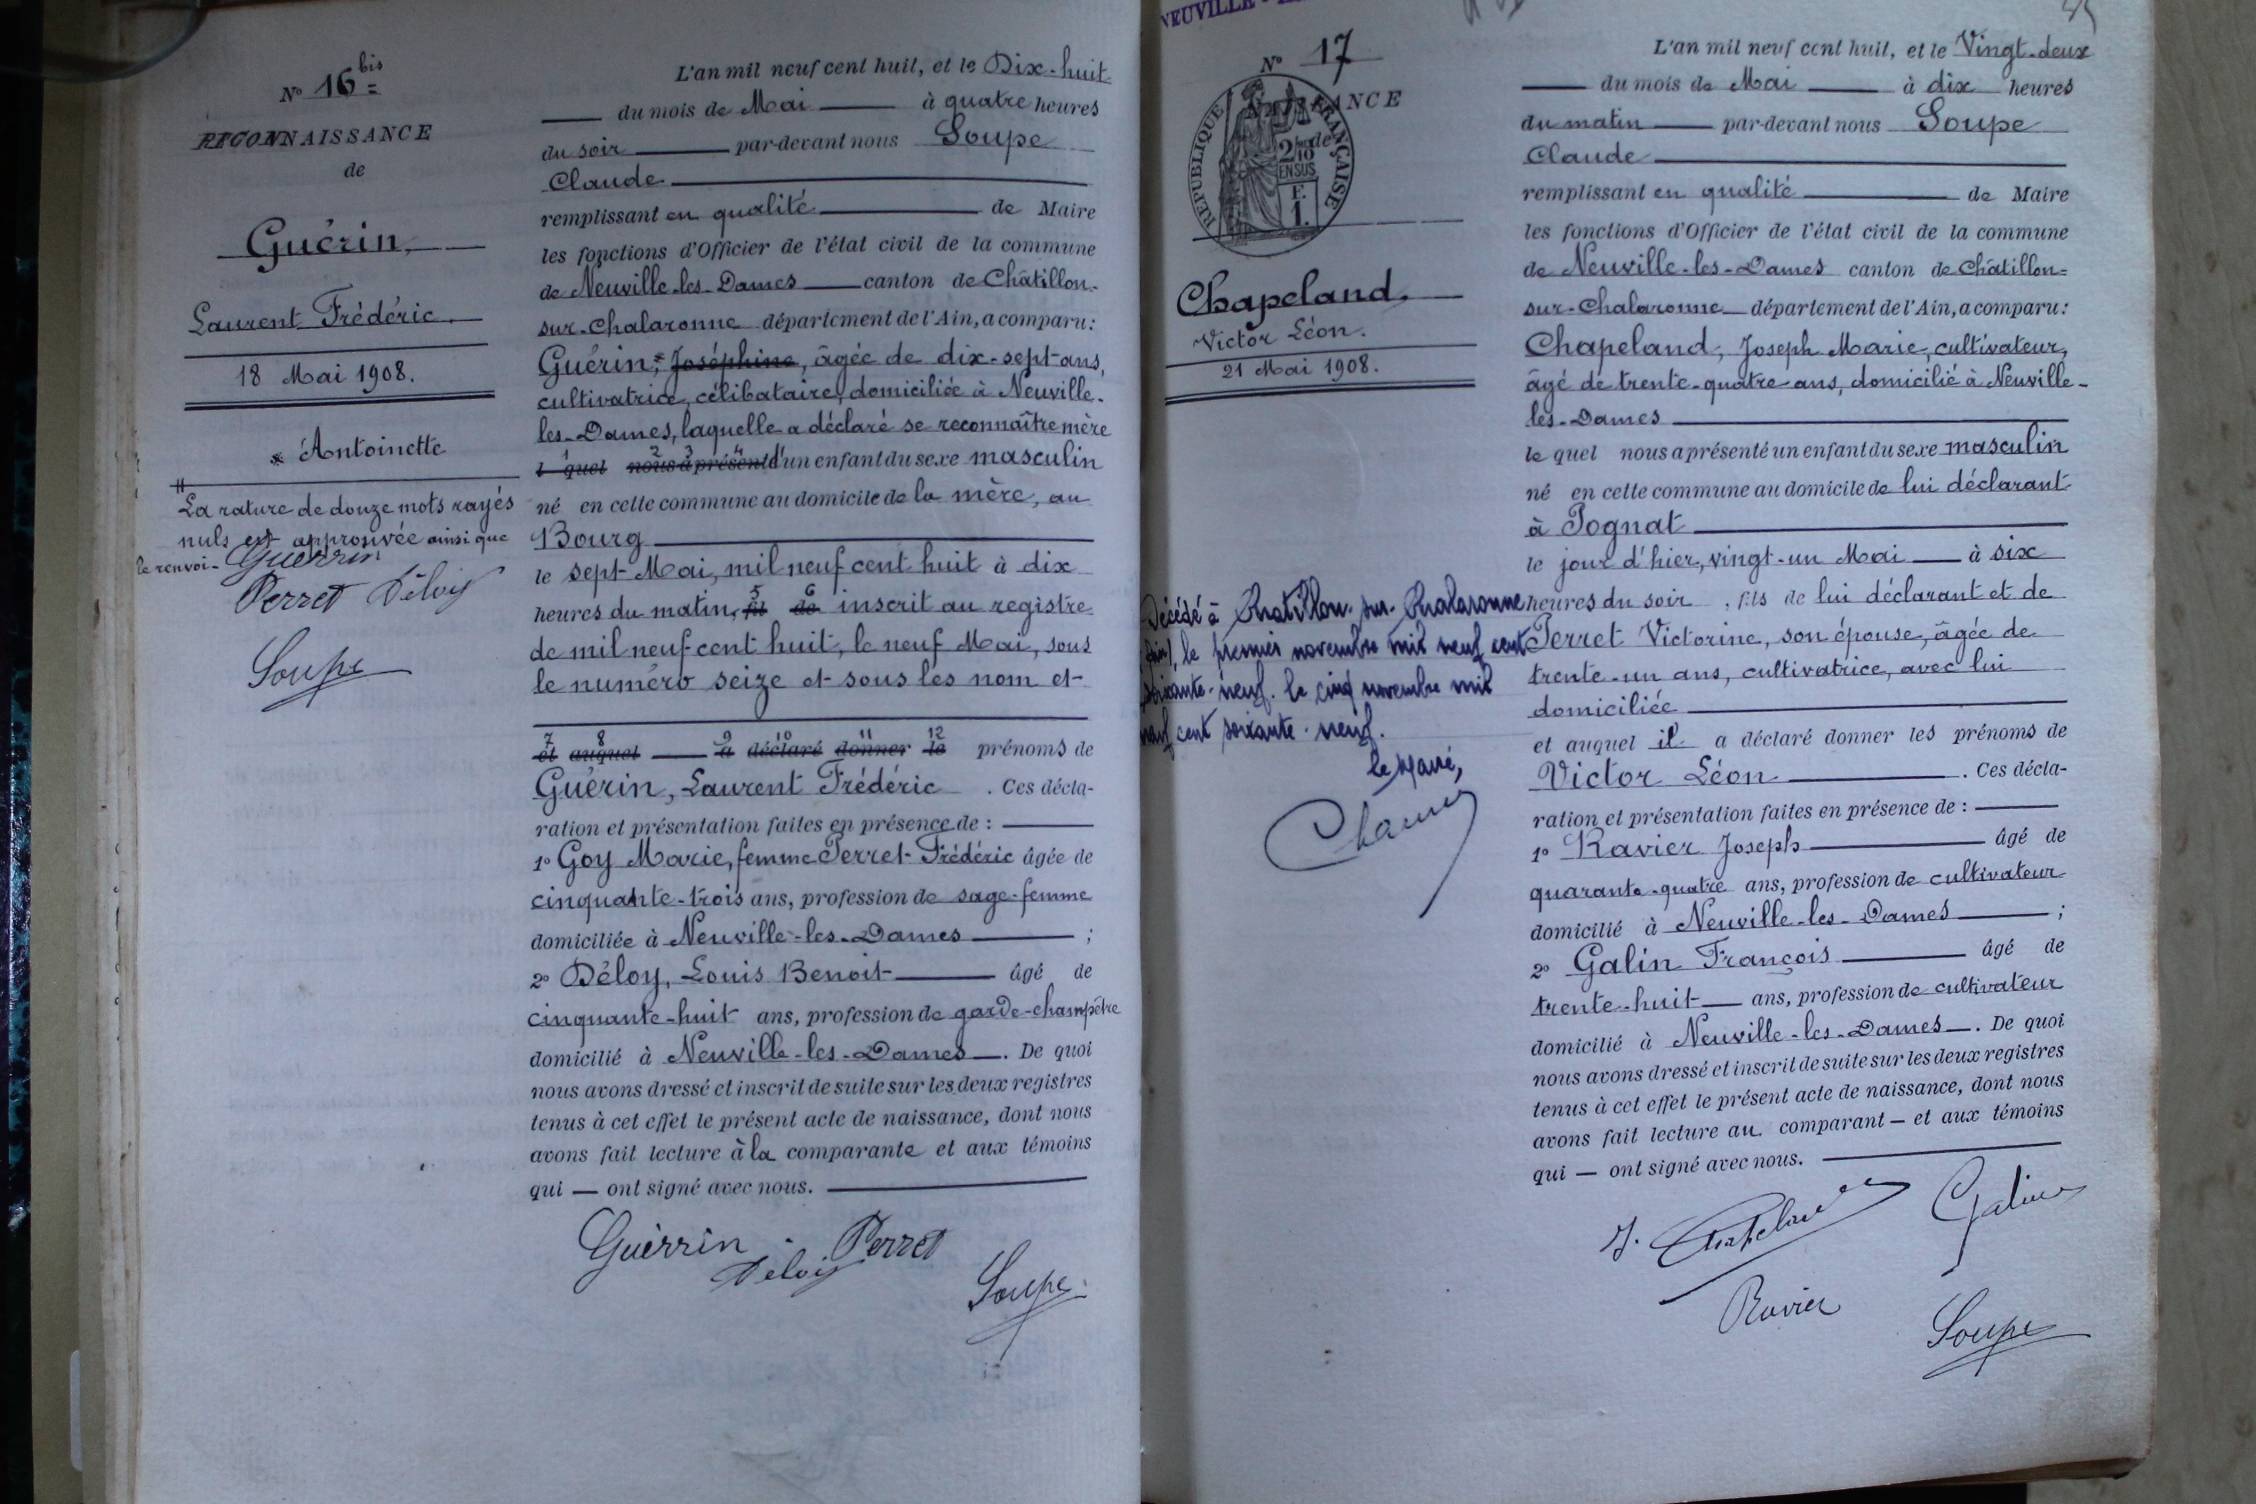 N° 16 bis =
RECONNAISSANCE
de
Guérin,
Laurent Frédéric.
18 Mai 1908.
* Antoinette
La rature de douze mots rayés
nuls est approuvée ainsi que
le renvoi. Guerrin
Perret Déloy
Soupe
L'an mil neuf cent huit, et le Dix-huit
du mois de Mai à quatre heures
du soir par-devant nous Soupe
Claude
remplissant en qualité de Maire
les fonctions d'Officier de l'état civil de la commune
de Neuville-les-Dames canton de Châtillon-
sur-Chalaronne département de l'Ain, a comparu:
Guérin, * Joséphine, âgée de dix-sept-ans,
cultivatrice, célibataire, domiciliée à Neuville-
les-Dames, laquelle a déclaré se reconnaître mère
1 2 3 4
l quel nous a présenté d'un enfant du sexe masculin
né en cette commune au domicile de la mère, au
Bourg
le sept Mai, mil neuf cent huit à dix
5 6
heures du matin, fil de inscrit au registre
de mil neuf cent huit, le neuf Mai, sous
le numéro seize et sous les nom et
7 8 9 10 11 12
et auquel a déclaré donner le prénoms de
Guérin, Laurent Frédéric . Ces décla-
ration et présentation faites en présence de :
1° Goy Marie, femme Perret Frédéric âgée de
cinquante-trois ans, profession de sage-femme
domiciliée à Neuville-les-Dames ;
2° Déloy, Louis Benoit âgé de
cinquante-huit ans, profession de garde-champêtre
domicilié à Neuville-les-Dames . De quoi
nous avons dressé et inscrit de suite sur les deux registres
tenus à cet effet le présent acte de naissance, dont nous
avons fait lecture à la comparante et aux témoins
qui — ont signé avec nous.
Guèrrin Perret
Déloy
Soupe
NEUVILLE-
N° 17
NAISSANCE
de
REPUBLIQUE FRANÇAISE
2/10 EN SUS
F.
1.
Chapeland,
Victor Léon.
21 Mai 1908.
Décédé à Chatillon-sur-Chalaronne
(Ain), le premier novembre mil neuf cent
soixante-neuf. le cinq novembre mil
neuf cent soixante-neuf.
le Maire,
L'an mil neuf cent huit, et le Vingt-deux
du mois de Mai à dix heures
du matin par-devant nous Soupe
Claude
remplissant en qualité de Maire
les fonctions d'Officier de l'état civil de la commune
de Neuville-les-Dames canton de Châtillon=
sur-Chalaronne département de l'Ain, a comparu:
Chapeland, Joseph Marie, cultivateur,
âgé de trente-quatre ans, domicilié à Neuville-
les-Dames
le quel nous a présenté un enfant du sexe masculin
né en cette commune au domicile de lui déclarant
à Pognat
le jour d'hier, vingt-un Mai à six
heures du soir , fils de lui déclarant et de
Perret Victorine, son épouse, âgée de
trente-un ans, cultivatrice, avec lui
domiciliée
et auquel il a déclaré donner les prénoms de
Victor Léon . Ces décla-
ration et présentation faites en présence de :
1° Ravier Joseph âgé de
quarante-quatre ans, profession de cultivateur
domicilié à Neuville-les-Dames ;
2° Galin François âgé de
trente-huit ans, profession de cultivateur
domicilié à Neuville-les-Dames . De quoi
nous avons dressé et inscrit de suite sur les deux registres
tenus à cet effet le présent acte de naissance, dont nous
avons fait lecture au comparant — et aux témoins
qui — ont signé avec nous.
J. Chapeland Galin
Ravier
Soupe